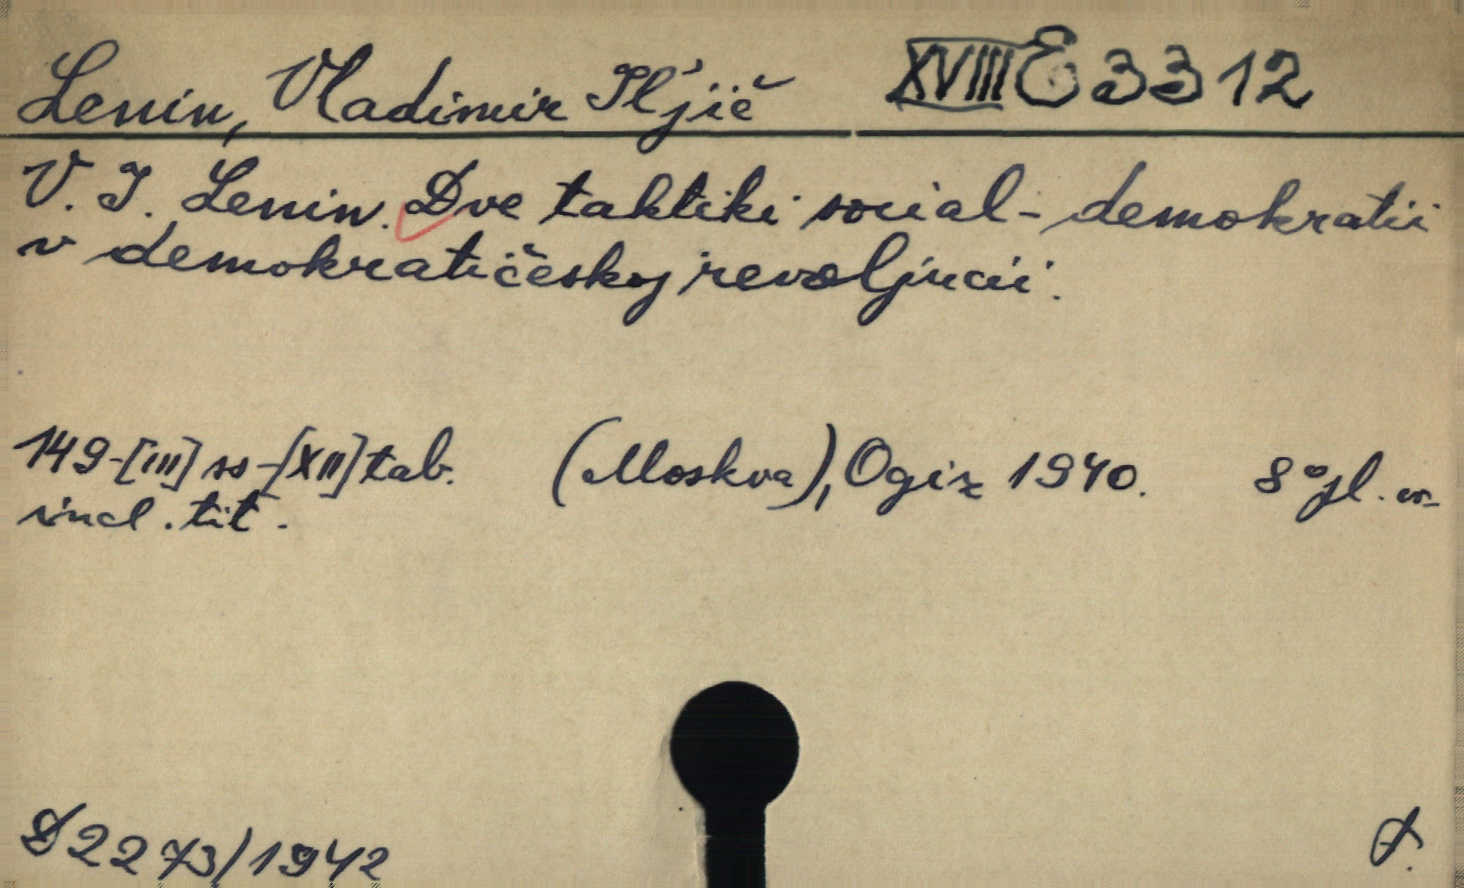 Lenin, Vladimir Il'jič XVIII E 3312
V. I. Lenin. Dve taktiki social-demokratii
v demokratičeskoj revoljucii.
149-[III] ss-[XII] tab. (Moskva), Ogiz 1940. 8°
incl. tit.
D 2273/1942